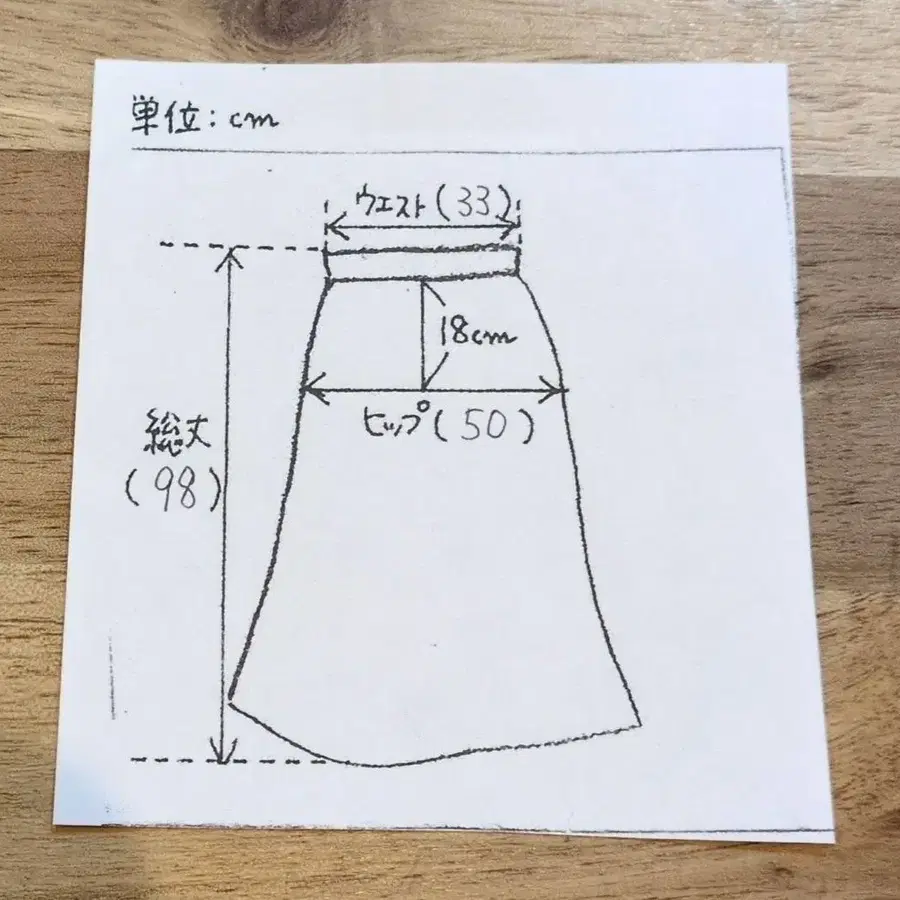 単位:cm
ウエスト(33)
18cm
ヒップ(50)
総丈
(98)